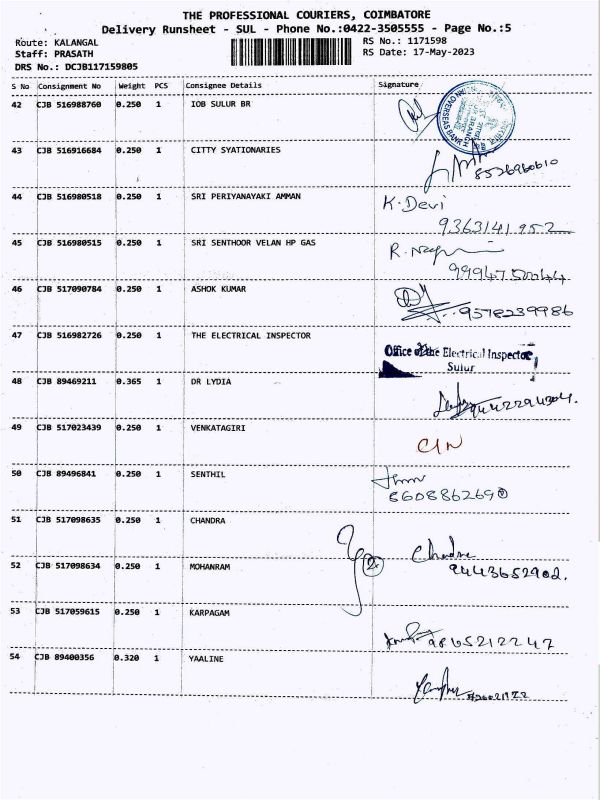 THE PROFESSIONAL COURIERS, COIMBATORE
Delivery Runsheet - SUL - Phone No.:0422-3505555 - Page No.:5
Route: KALANGAL RS No.: 1171598
Staff: PRASATH RS Date: 17-May-2023
DRS No.: DCJB117159805
S No Consignment No Weight PCS Consignee Details Signature
42 CJB 516988760 0.250 1 IOB SULUR BR
43 CJB 516916684 0.250 1 CITTY SYATIONARIES
8526960610
44 CJB 516980518 0.250 1 SRI PERIYANAYAKI AMMAN K. Devi
9363141952
45 CJB 516980515 0.250 1 SRI SENTHOOR VELAN HP GAS
9994750044
46 CJB 517090784 0.250 1 ASHOK KUMAR
9578239986
47 CJB 516982726 0.250 1 THE ELECTRICAL INSPECTOR
Office of the Electrical Inspector
Sulur
48 CJB 89469211 0.365 1 DR LYDIA
49 CJB 517023439 0.250 1 VENKATAGIRI
C/N
50 CJB 89496841 0.250 1 SENTHIL
8608862690
51 CJB 517098635 0.250 1 CHANDRA
Chandra
52 CJB 517098634 0.250 1 MOHANRAM 2
9443652902.
53 CJB 517059615 0.250 1 KARPAGAM
9865212247
54 CJB 89400356 0.320 1 YAALINE